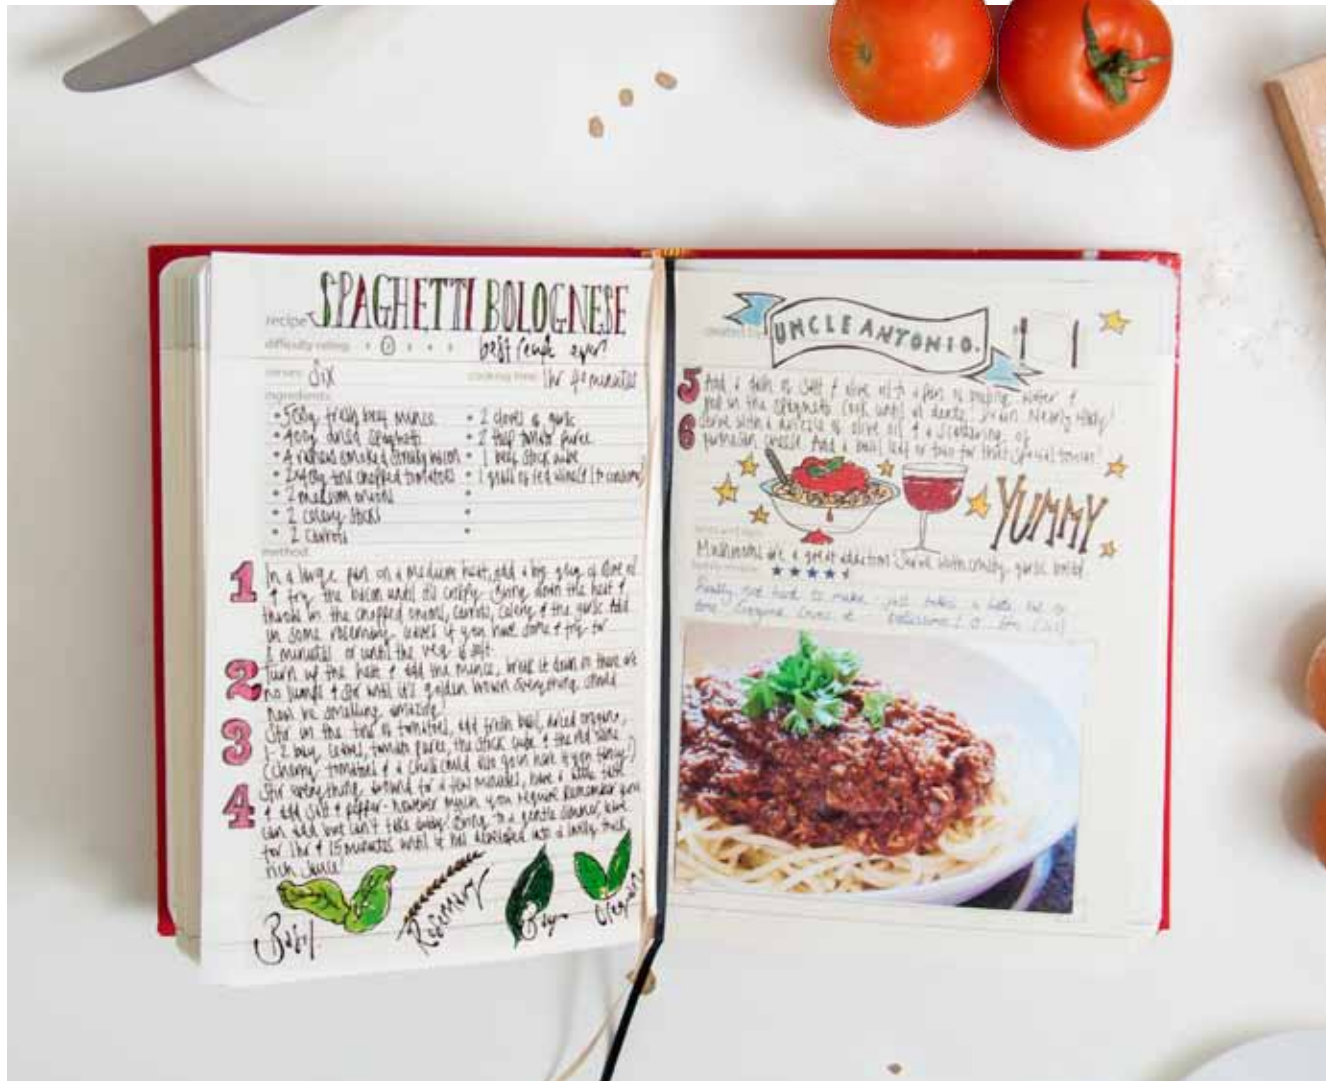 recipe SPAGHETTI BOLOGNESE
difficulty rating best recipe ever!
serves Six cooking time 1hr 40 minutes
ingredients
• 500g fresh beef mince • 2 cloves of garlic
• 400g dried spaghetti • 2 tbsp tomato puree
• 4 rashers smoked streaky bacon • 1 beef stock cube
• 2x400g tins chopped tomatoes • 1 glass of red wine (& 1 to consume)
• 2 medium onions •
• 2 celery sticks •
• 2 carrots •
method
1 In a large pan on a medium heat, add a big glug of olive oil
& fry the bacon until it's crispy. Bring down the heat &
throw in the chopped onions, carrots, celery & the garlic. Add
in some rosemary leaves if you have some & fry for
8 minutes or until the veg is soft.
2 Turn up the heat & add the mince, break it down so there are
no lumps & stir until it's golden brown. Everything should
now be smelling amazing!
3 Stir in the tins of tomatoes, add fresh basil, dried oregano,
1-2 bay leaves, tomato puree, the stock cube & the red wine
(cherry tomatoes & a chilli could also go in here if you fancy!)
4 Stir everything around for a few minutes, have a little taste
& add salt & pepper - however much you require. Remember you
can add but can't take away! Bring to a gentle simmer, leave
for 1hr & 15 minutes until it has developed into a lovely thick
rich sauce!
Basil Rosemary Bay Oregano
created by UNCLE ANTONIO.
5 Add a dash of salt & olive oil to a pan of boiling water &
pop in the spaghetti. Cook until al dente! Drain. Nearly ready!
6 Serve with a drizzle of olive oil & a scattering of
parmesan cheese. Add a basil leaf or two for that special touch!
YUMMY
Mushrooms are a great addition! Serve with crusty garlic bread.
Really not hard to make - just takes a
time. Everyone loves it